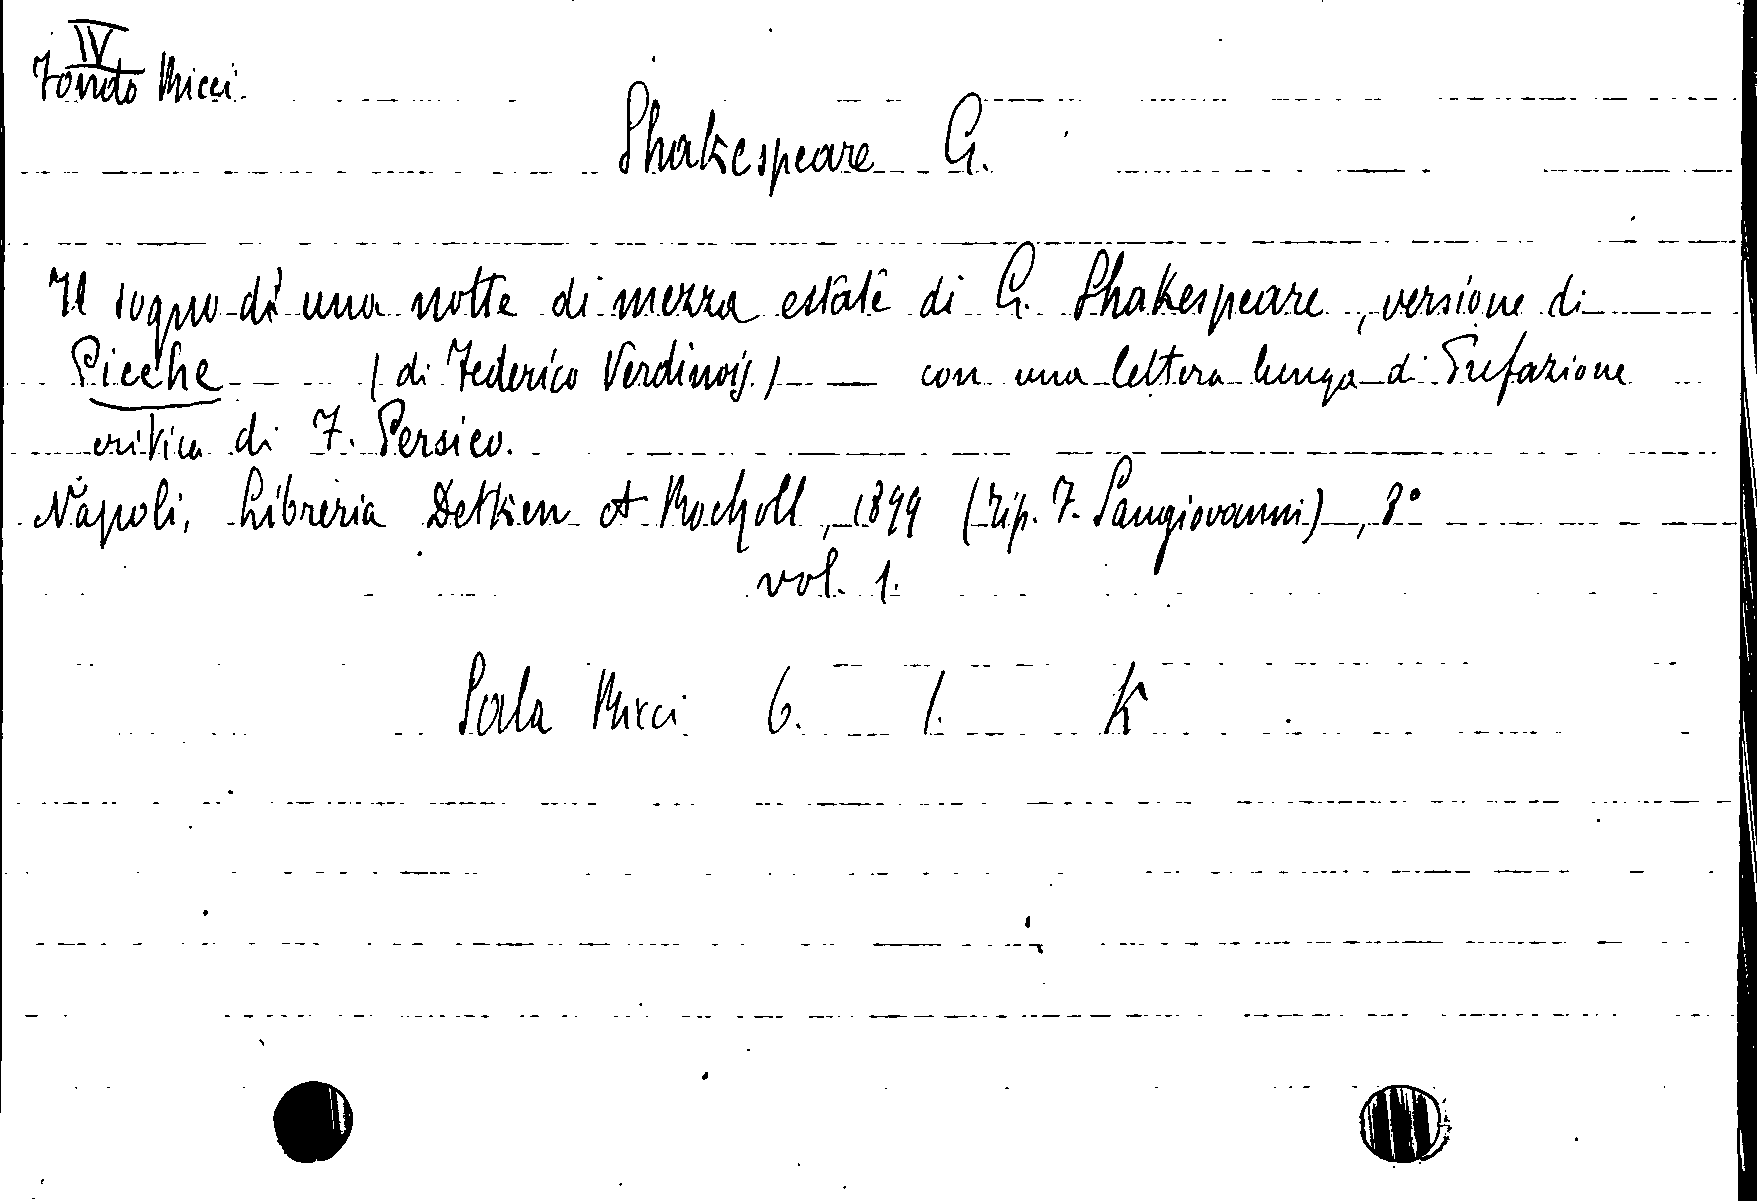 IV
Fondo Micci
Shakespeare G.
Il sogno di una notte di mezza estate di G. Shakespeare, versione di
Picche (di Federico Verdinois) con una lettera lunga di Prefazione
critica di F. Persico.
Napoli, Libreria Detken & Rocholl, 1899 (tip. F. Sangiovanni), 8°
vol. 1.
Sala Micci 6. 1. K